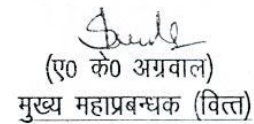 (ए० के० अग्रवाल)
मुख्य महाप्रबन्धक (वित्त)